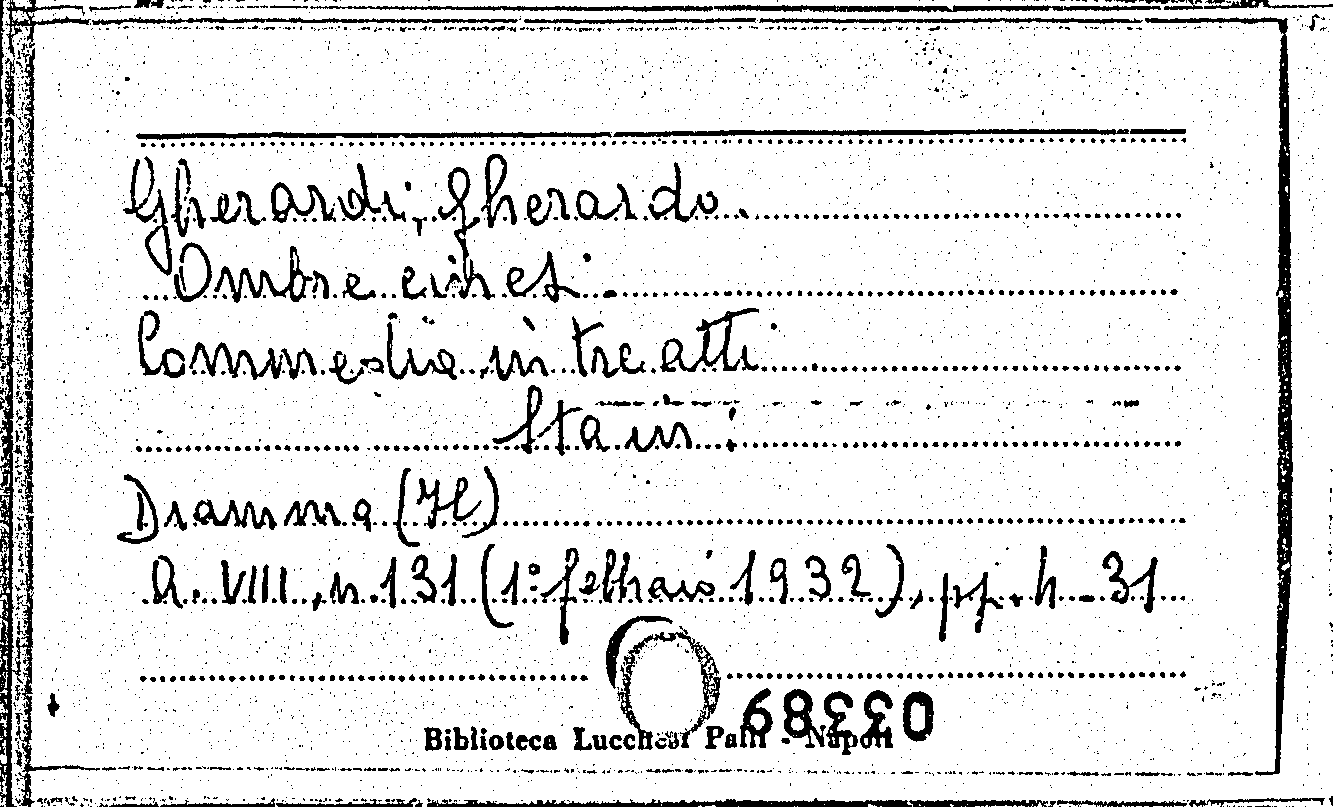 Gherardi, Gherardo.
Ombre cinesi.
Commedia in tre atti.
Sta in:
Dramma (Il)
A. VIII, n. 131 (1° febbraio 1932), pp. 4-31
Biblioteca Lucchesi Palli - Napoli